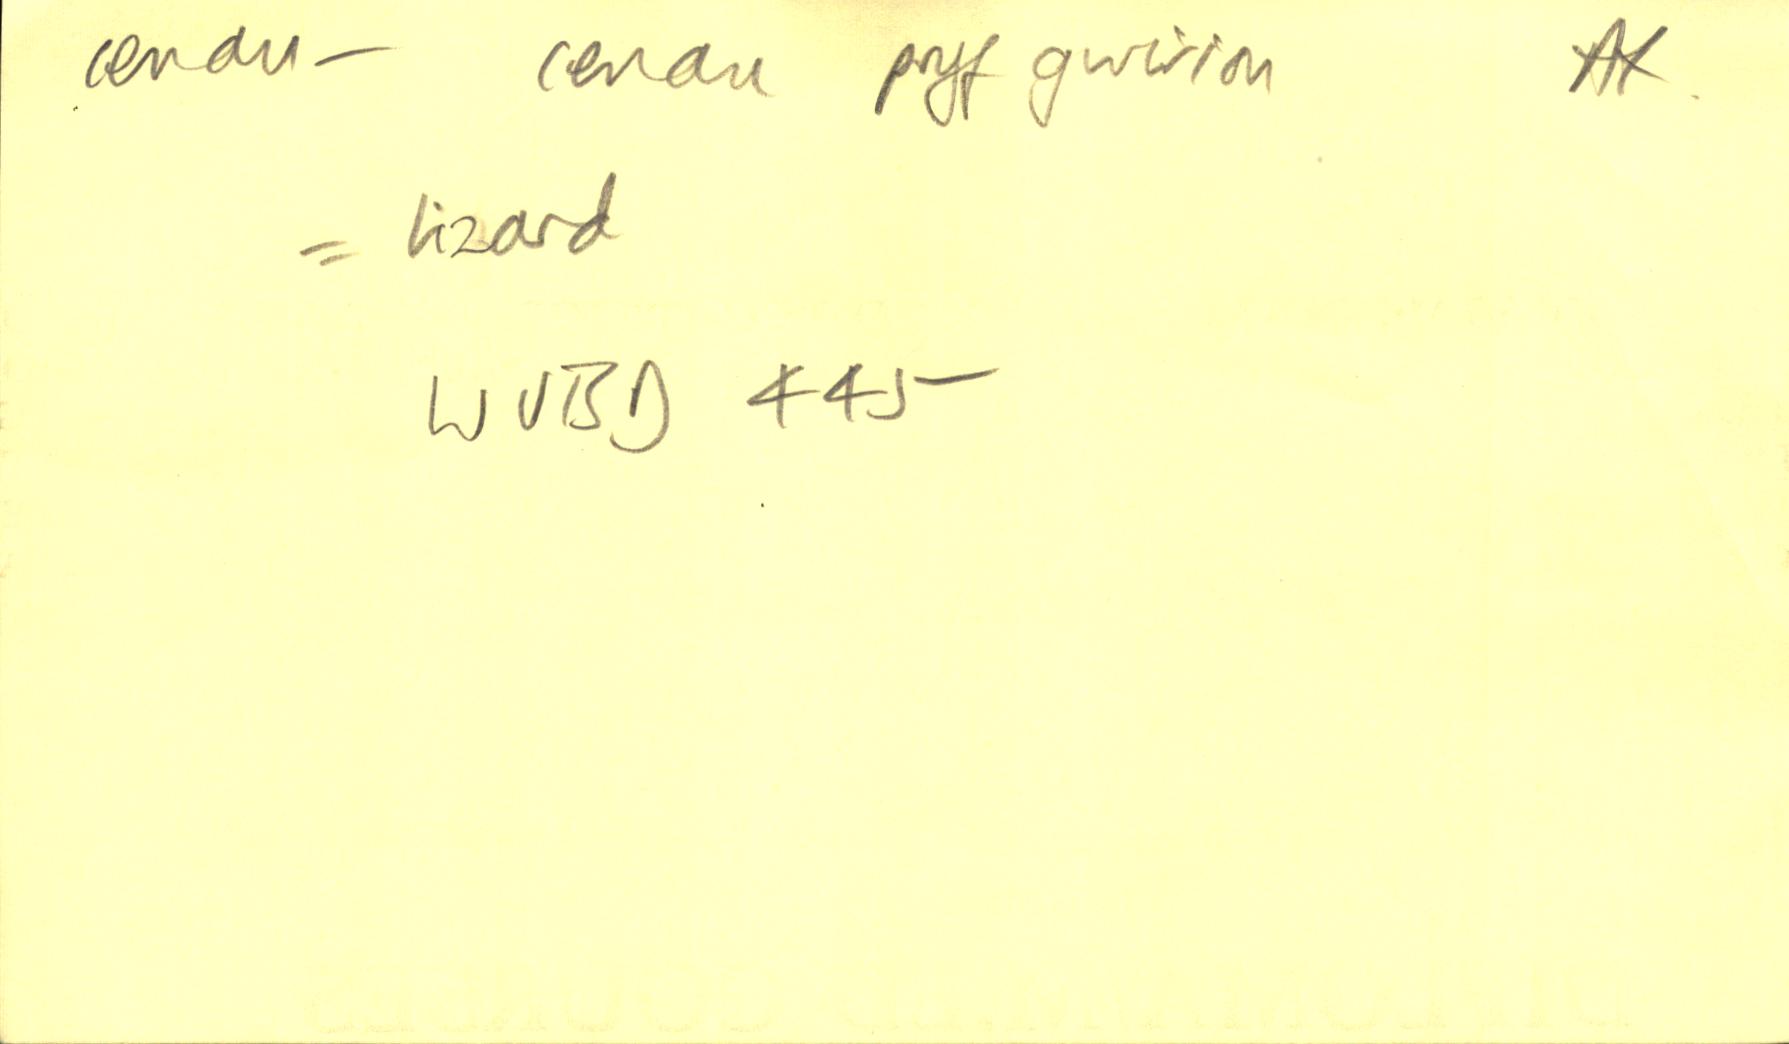 cenau - cenau pryf gwirion
= lizard
WVBD 445